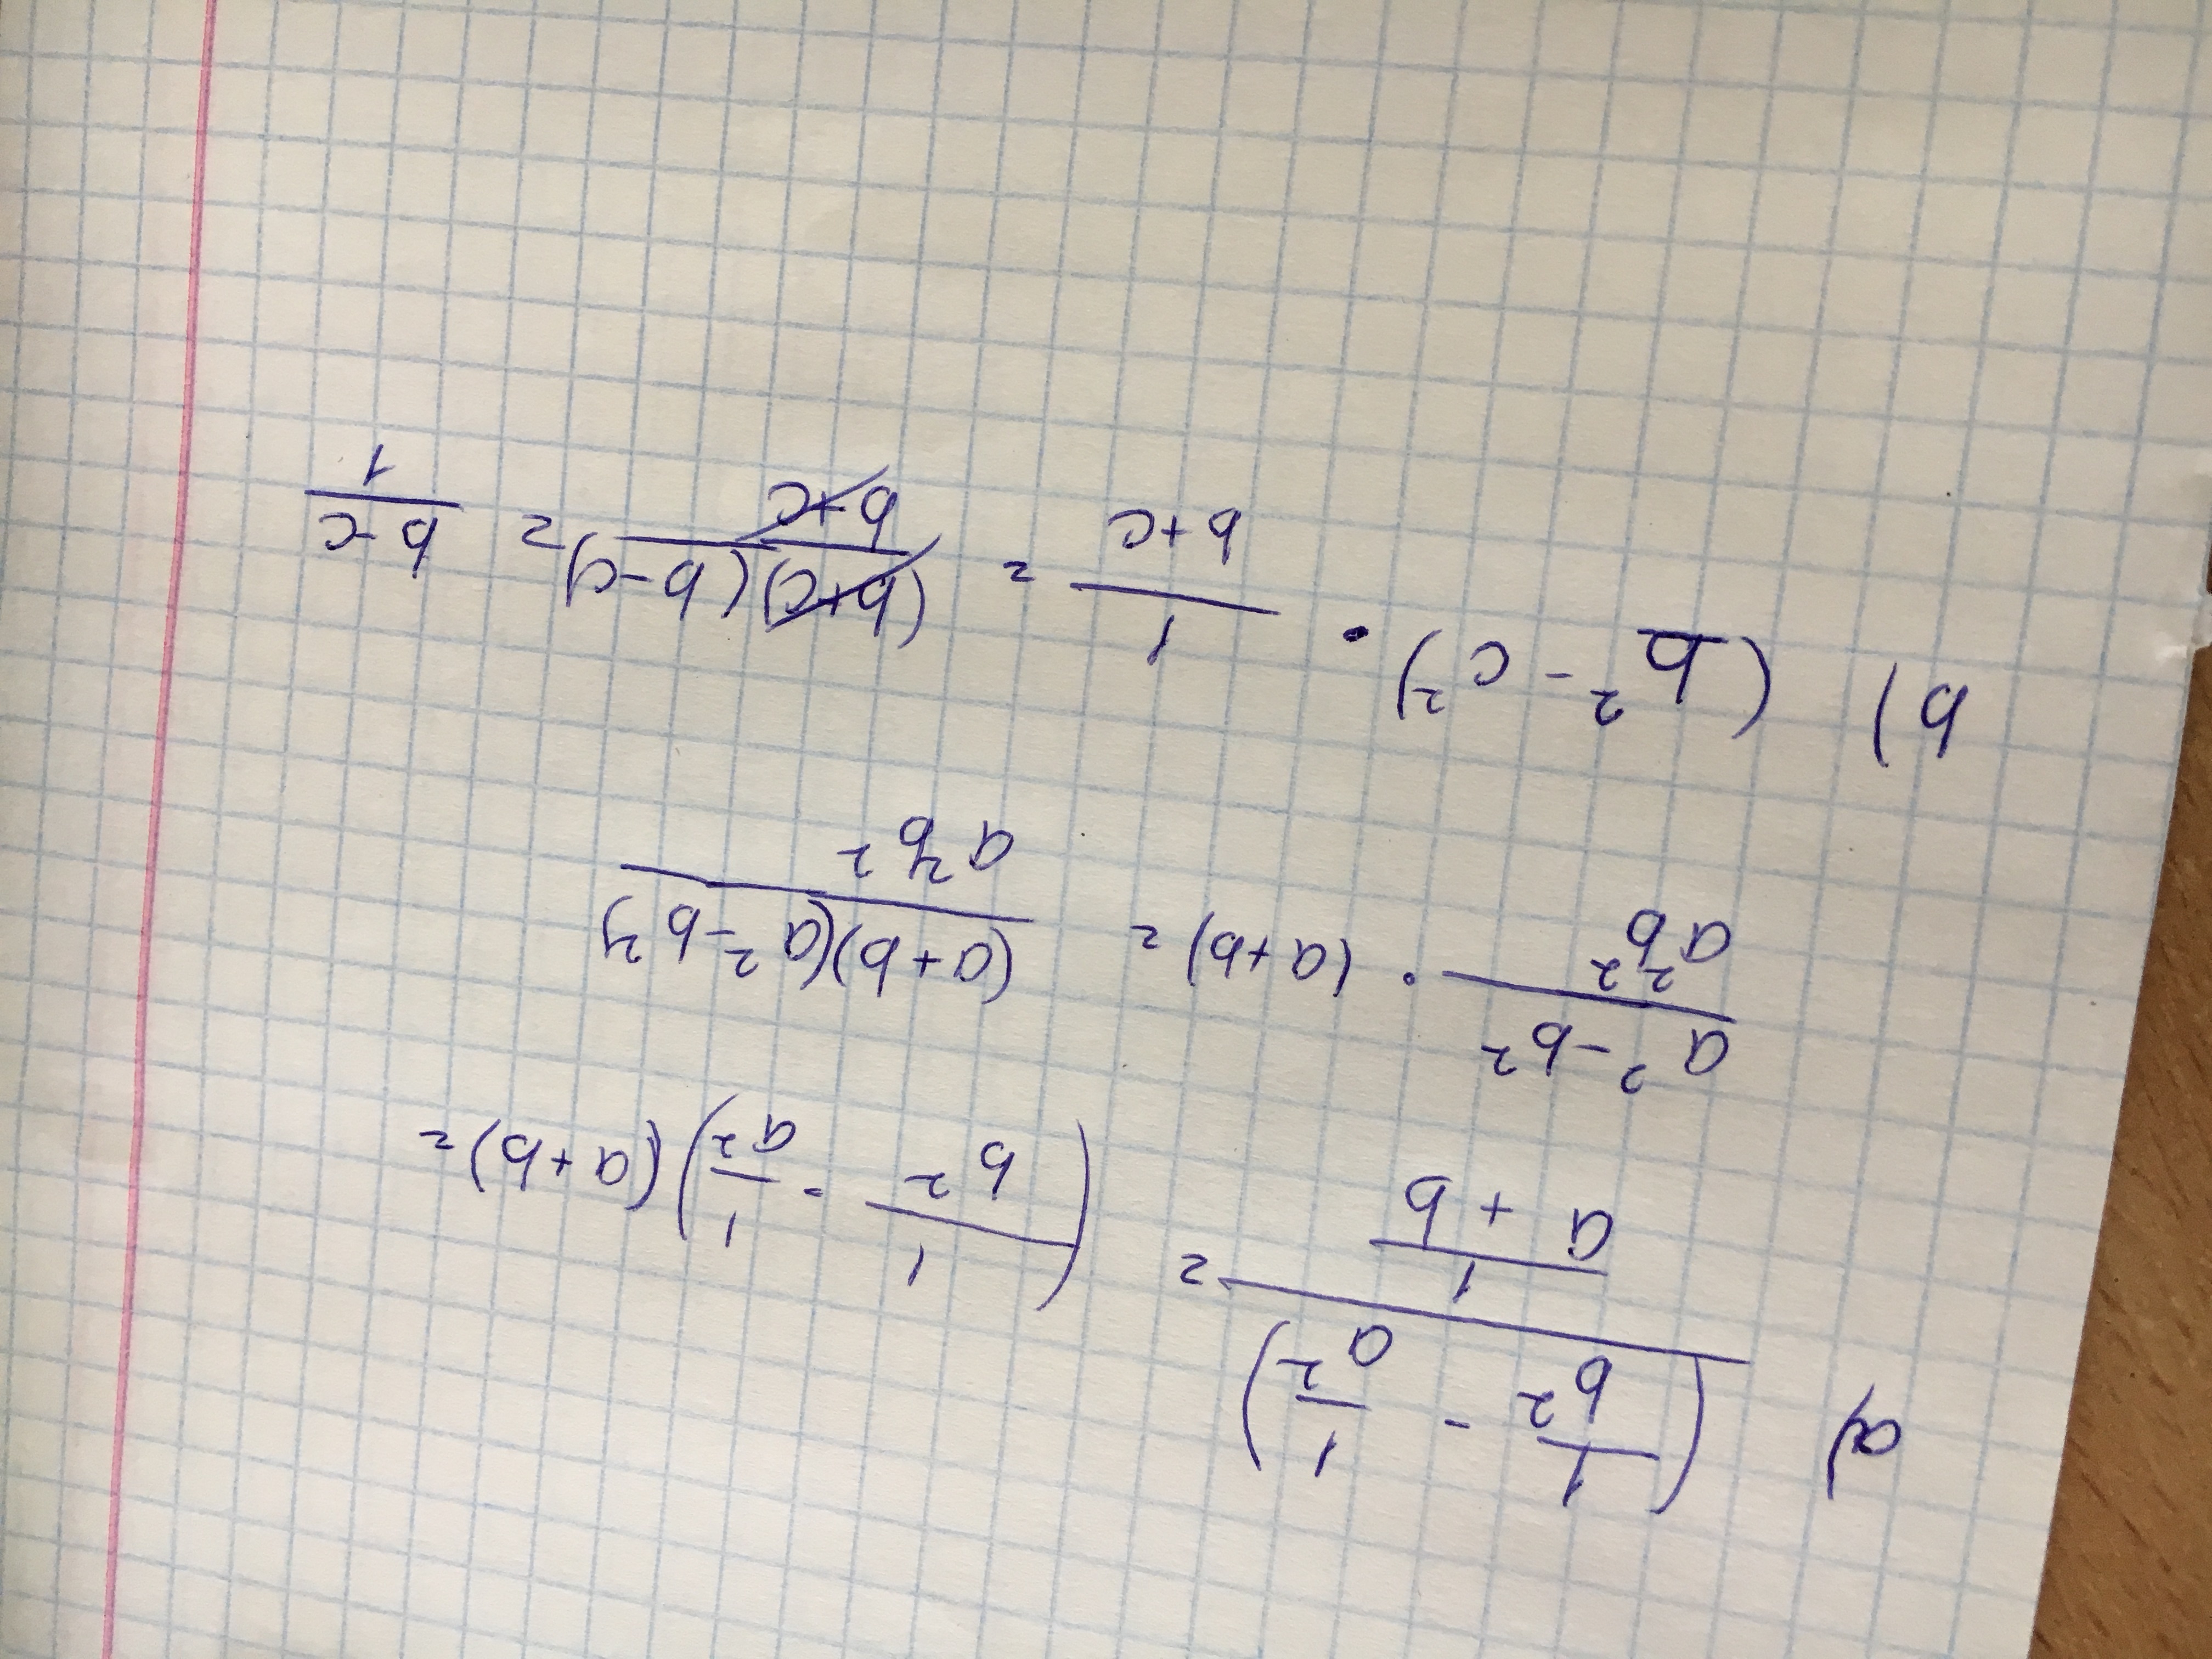 a) (1/b² - 1/a²) / (1/(a + b)) = (1/b² - 1/a²)(a+b) =
(a² - b²)/(a²b²) · (a+b) = ((a+b)(a² - b²))/(a²b²)
b) (b² - c²) · 1/(b+c) = ((b+c)(b-c))/(b+c) = (b-c)/1